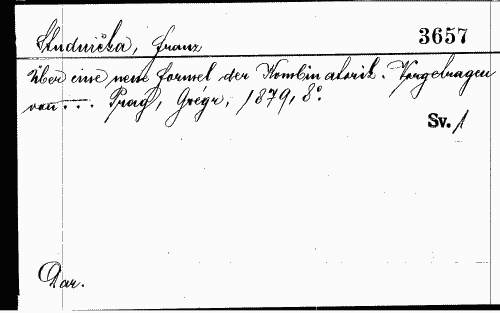 Studnička, Franz 3657
Über eine neue Formel der Kombinatorik. Vorgetragen
von ... Prag, Grégr, 1879, 8°.
Sv. 1
Dar.